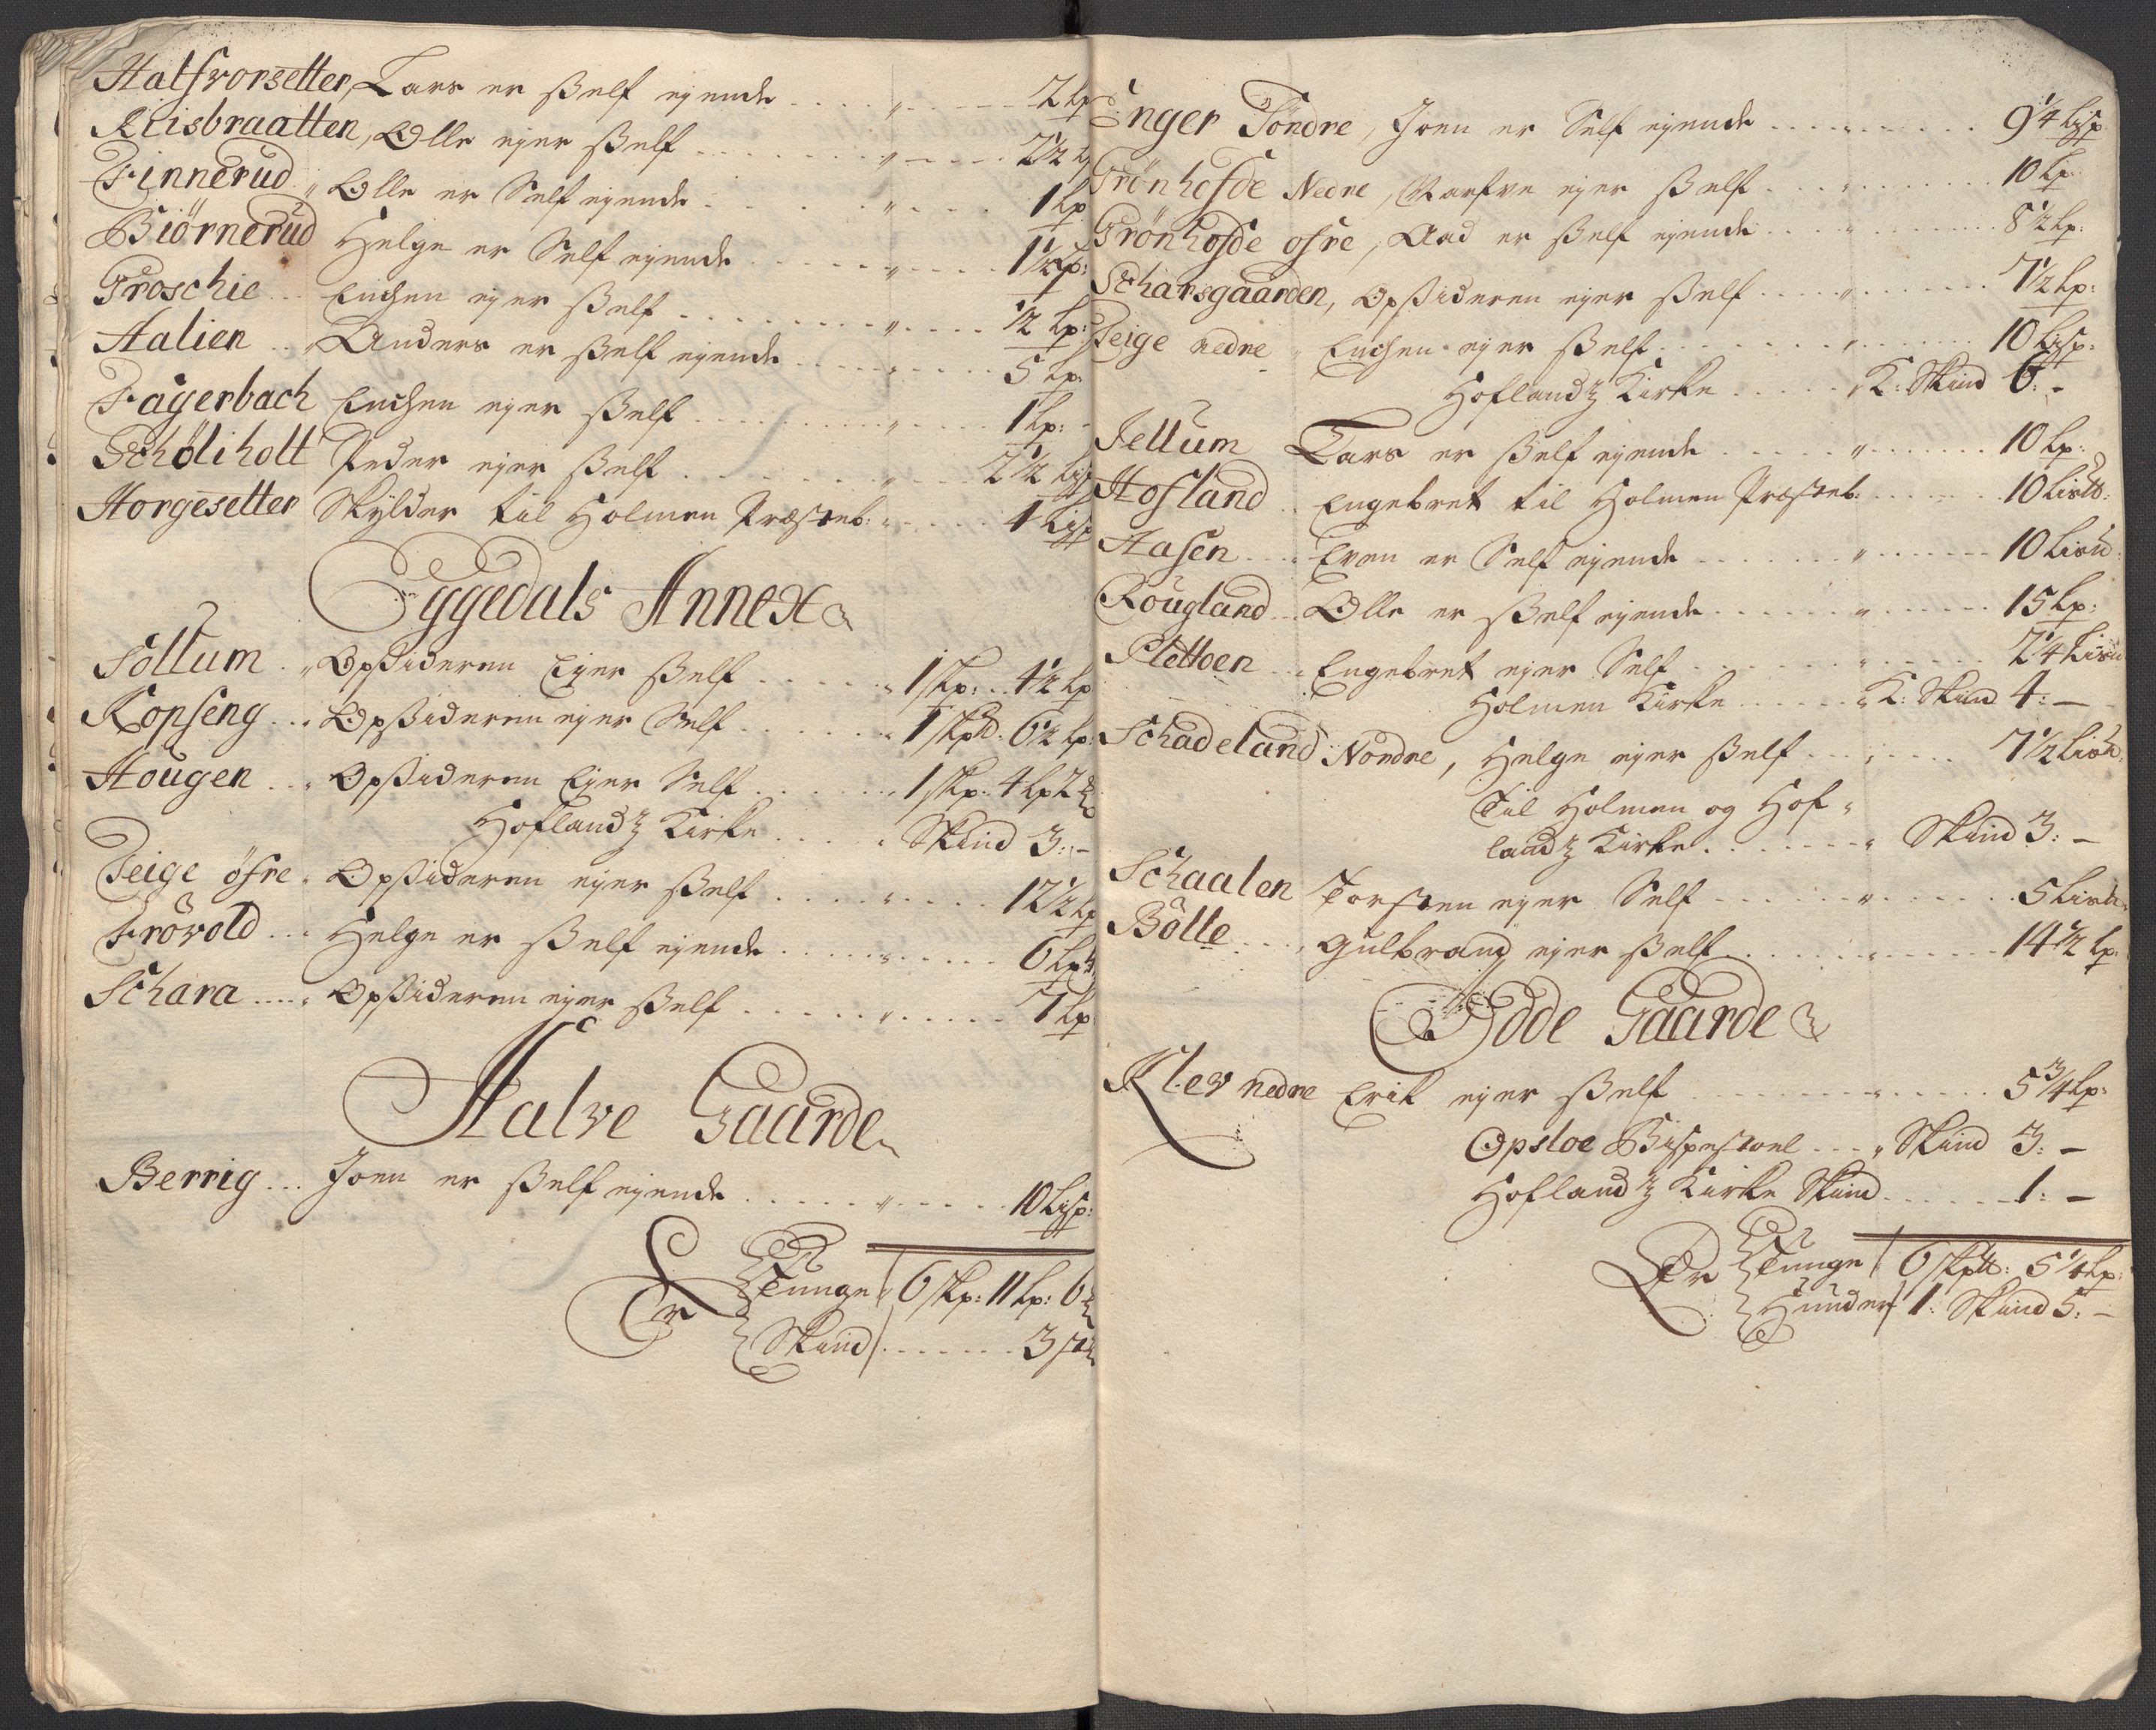 Halfvorsetter, Lars er sßelf ejende . . . . " . . . . 2 Lp
Riisbraatten, Olle ejer sßelf . . . . " . . . . 2½ Lp
Finnerud " Olle er Self ejende . . . . " . . . . 1 Lp
Biörnerud Helge er Self ejende . . . . " . . . . 1½ Lp:
Groschie . . Enchen ejer sßelf . . . . " . . . . ½ Lp:
Halien . . " Anders er sßelf ejende . . . . " . . . . 5 Lp:
Fagerbach Enchen ejer sßelf . . . . " . . . . 1 Lp:
Schöliholt Peder ejer sßelf . . . . " . . . . 2½ Lisp
Horgesetter Skylder til Holmen Præsteb: " . . . . 1 Lisp
Eggedals Annex
Sollum . " Opsideren Ejer sßelf . . . . " 1 skp: . . 4½ Lp
Kopseng . . " Opsideren ejer Self . . . . " 1 skpd. 6½ Lp:
Hougen . . " Opsideren Ejer Self . . . . " 1 skp: 4 Lp 2
Hoflandz Kirke . . . . " Skind 3: -
Teige öfre " Opsideren ejer sßelf . . . . " . . . . 12½ Lp
Frövold . . . Helge er sßelf ejende . . . . " . . . . 6 Lp
Schara . . . . " Opsideren ejer sßelf . . . . " . . . . 7 Lp
Halve Gaarde
Berrig . . . Joen er sßelf ejende . . . . " . . . . 10 Lisp:
Er Tunge 6 skp: 11 Lp: 6
Skind . . . . 3
Enger Söndre, Joen er Self ejende . . . . " . . . . 9¼ Lisp
Grönhofde Nedre, ejer sßelf . . . . " . . . . 10 Lp
Grönhofde ofre, Aad er sßelf ejende . . . . " . . . . 8½ Lp:
Scharsgaarden, Opsideren ejer sßelf . . . . " . . . . 7½ Lp:
Teige nedre " Enchen ejer sßelf . . . . " . . . . 10 Lisp:
Hoflandz Kirke . . . . " K: Skind 6: -
Jellum Lars er sßelf ejende . . . . " . . . . 10 Lp:
Hofland . . Engebret til Holmen Præsteb: . . . . 10 Lis℔:
Aasen . . . " Even er Self ejende . . . . " . . . . 10 Lis℔
Rougland . . Olle er sßelf ejende . . . . " . . . . 15 Lp:
Plettoen . . " Engebret ejer Self . . . . " . . . . 2¼ Lis℔
Holmen Kirke . . . . " K: Skind 4: -
Schadeland Nordre, Helge ejer sßelf . . . . " . . . . 7½ Lis℔.
Til Holmen og Hof-
landz Kirke . . . . " Skind 3: -
Schaalen Torsten ejer Self . . . . " . . . . 5 Lis℔.
Bölte . . . . " Gulbrand ejer sßelf . . . . " . . . . 14½ Lp:
Ödde Gaarde
Klev nedre Erik ejer sßelf . . . . " . . . . 5¾ Lp:
Opsloe Bispestoel . . . " Skind 3: -
Hoflandz Kirke Skind . . . . 1: -
Er Tunge 6 skp℔: 5¼ Lp:
Huuder 1: Skind 5: -